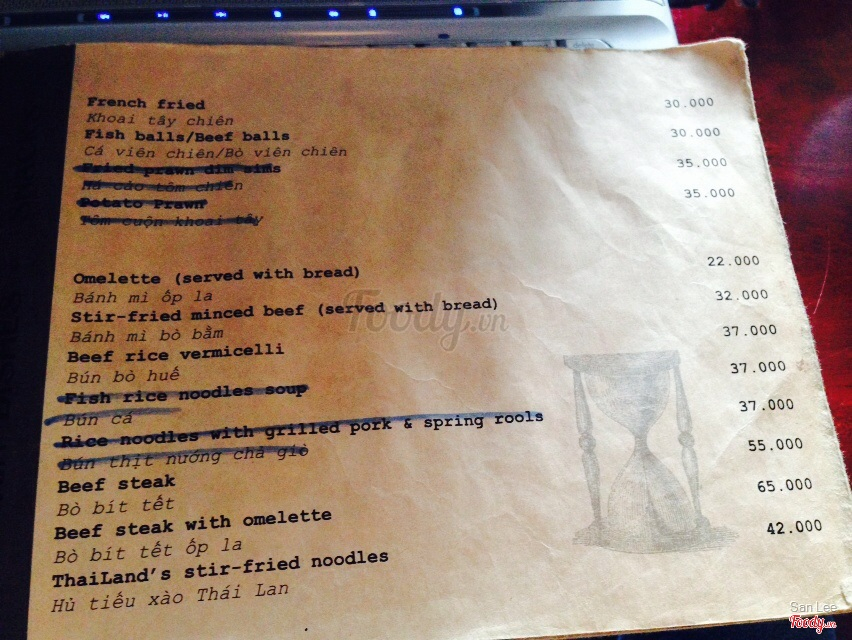 French fried 30.000
Khoai tây chiên
Fish balls/Beef balls 30.000
Cá viên chiên/Bò viên chiên
Fried prawn dim sims 35.000
Há cảo tôm chiên
Potato Prawn 35.000
Tôm cuộn khoai tây
Omelette (served with bread) 22.000
Bánh mì ốp la
Stir-fried minced beef (served with bread) 32.000
Bánh mì bò bằm
Beef rice vermicelli 37.000
Bún bò huế
Fish rice noodles soup 37.000
Bún cá
Rice noodles with grilled pork & spring rools 37.000
Bún thịt nướng chả giò
Beef steak 55.000
Bò bít tết
Beef steak with omelette 65.000
Bò bít tết ốp la
ThaiLand's stir-fried noodles 42.000
Hủ tiếu xào Thái Lan
Foody.vn
San Lee
Foody.vn